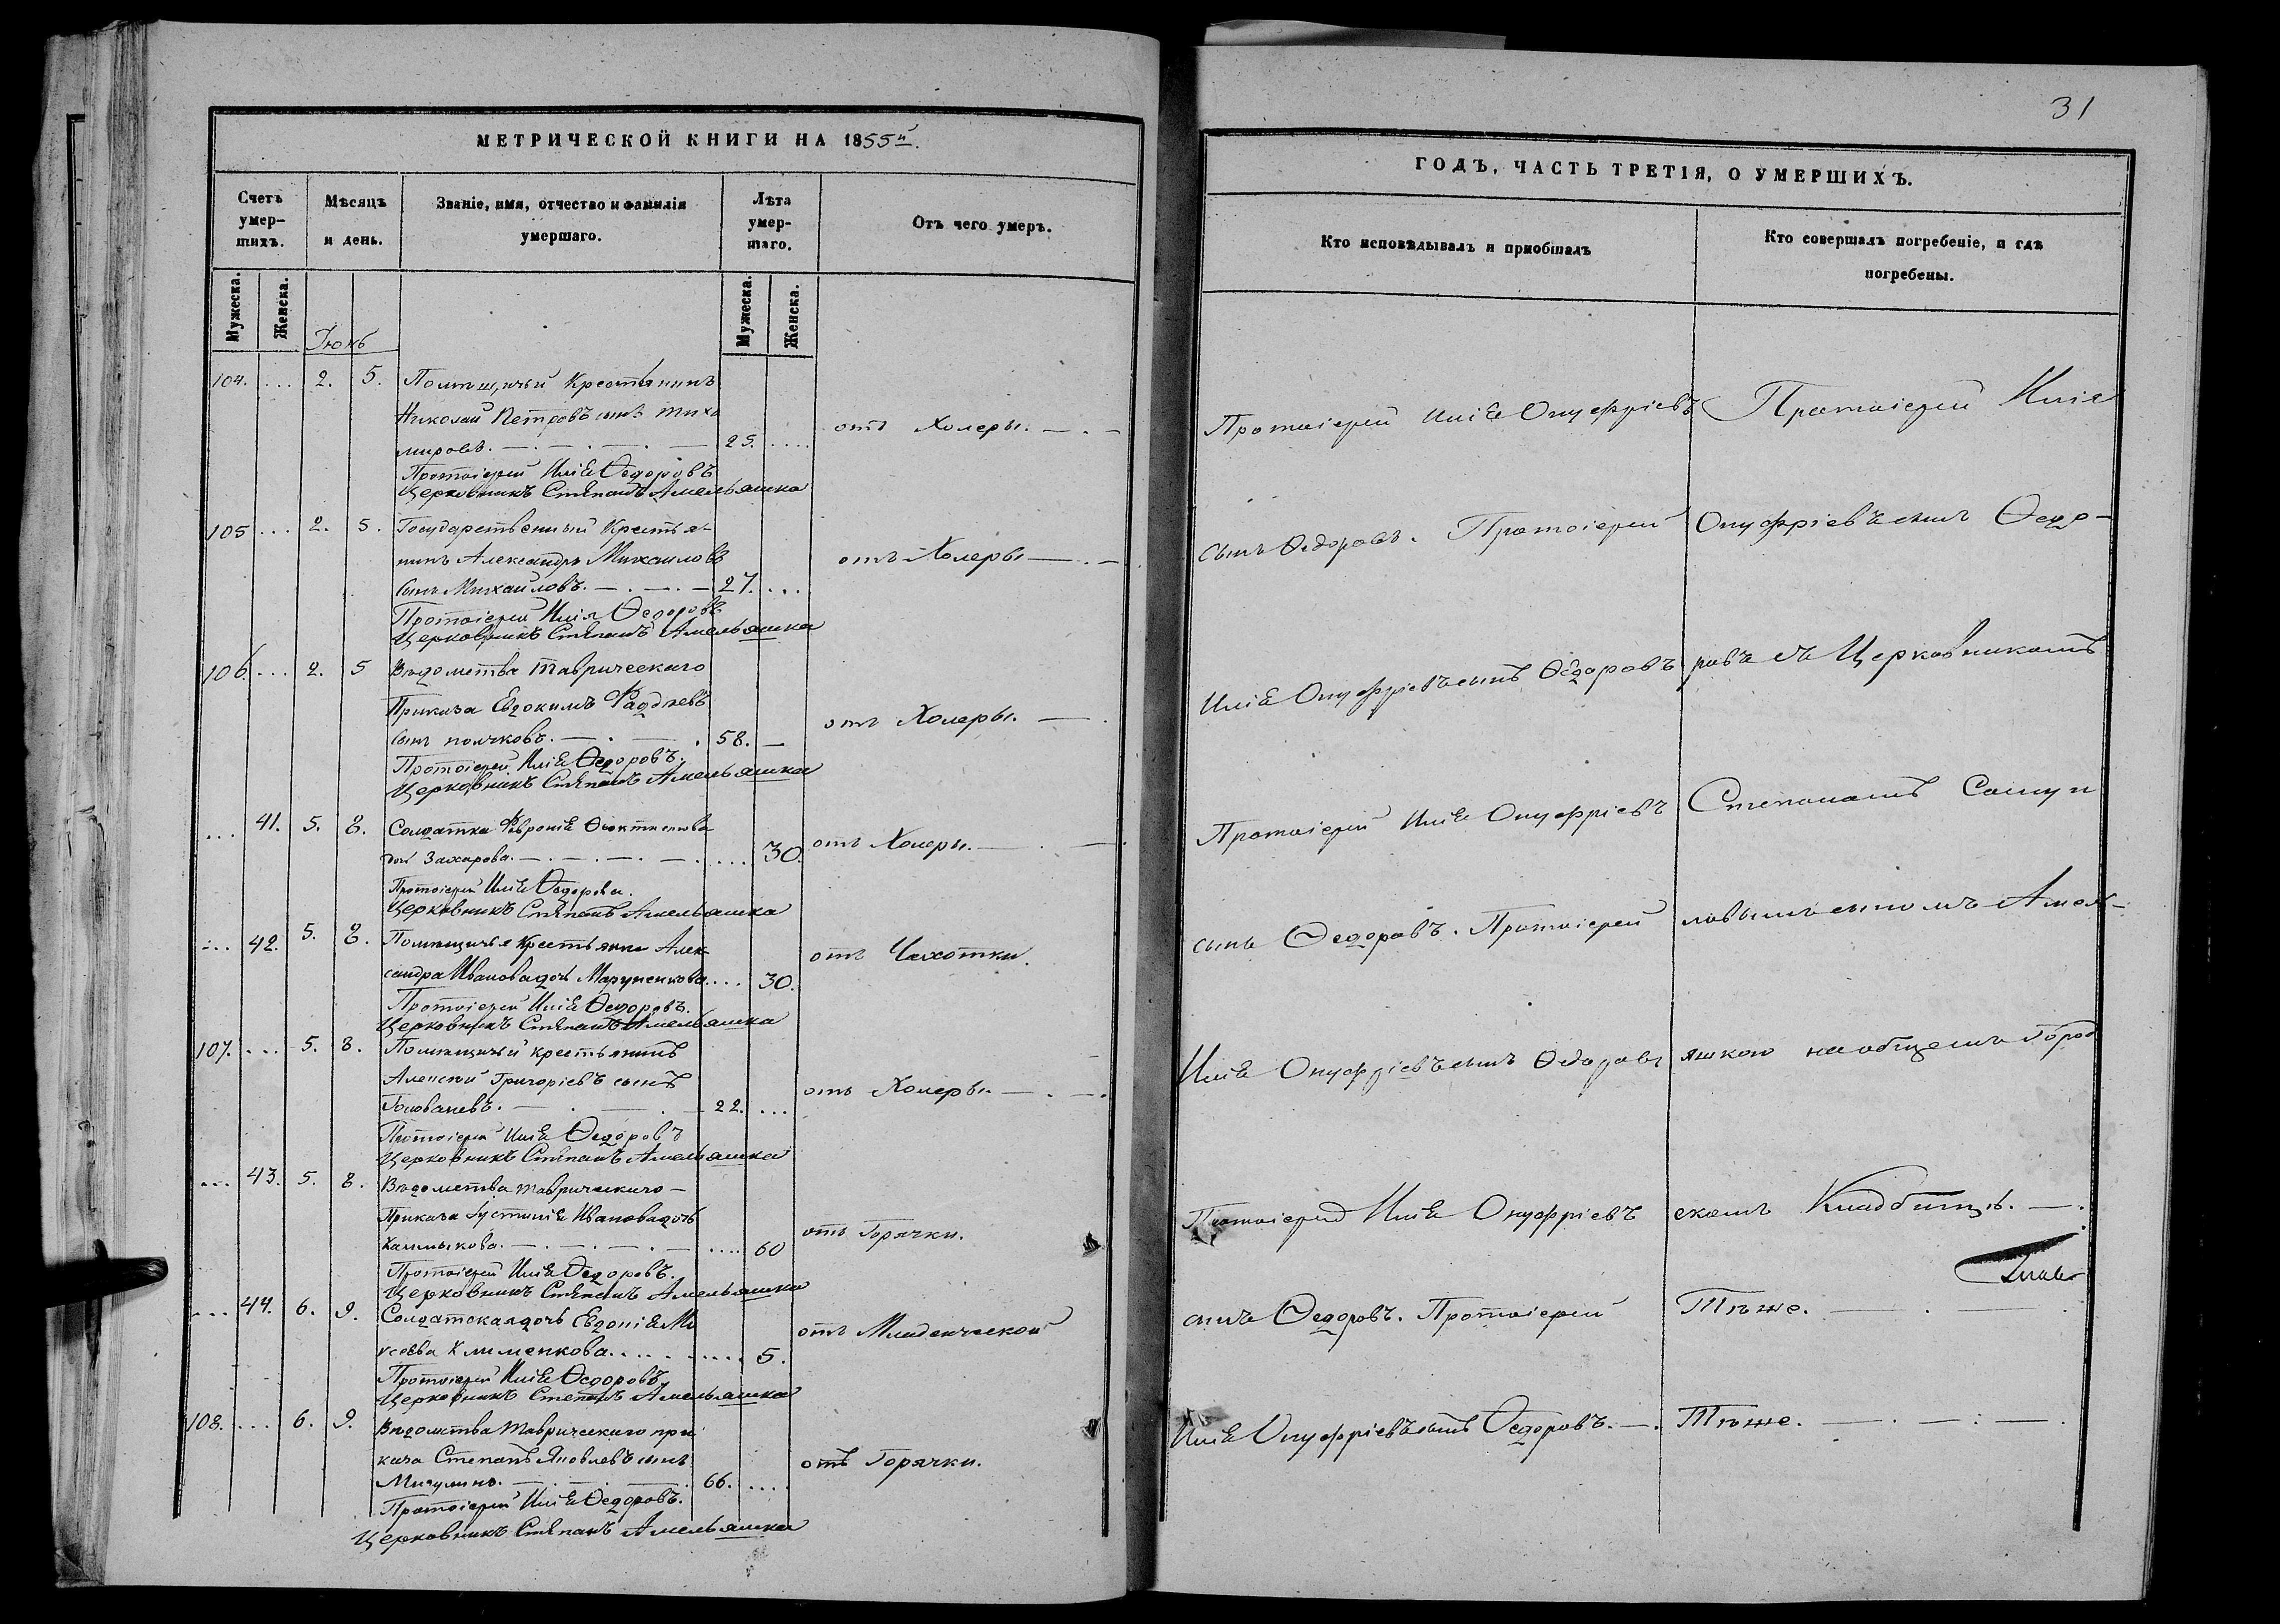 МЕТРИЧЕСКОЙ КНИГИ НА 1855й.
Счетъ умер-
шихъ.
Мѣсяцъ
и день.
Званіе, имя, отчество и фамилія
умершаго.
Лѣта
умер-
шаго.
Отъ чего умеръ.
Мужеска.
Женска.
Мужеска.
Женска.
104. ... 2. 5. Помѣщичій Крестьянинъ
Николай Петровъ сынъ Тихо
мировъ. 25. .... отъ Холеры.
Протоіерей Илія Ѳедоровъ
Церковникъ Стѣпанъ Амельяшка
105 ... 2. 5. Государственный Крестья-
нинъ Александръ Михаиловъ
сынъ Михайловъ. 27. ... отъ Холеры
Протоіерей Илія Ѳедоровъ
Церковникъ Стѣпанъ Амельяшка
106. ... 2. 5 Вѣдомства Таврическаго
Приказа Евдокимъ Фаддѣевъ
сынъ 58. отъ Холеры.
Протоіерей Илія Ѳедоровъ.
Церковникъ Стѣпанъ Амельяшка
... 41. 5. 8. Солдатка Февронія
дочь Захарова. .... 30. отъ Холеры.
Протоіерей Илія Ѳедоровъ.
Церковникъ Стѣпанъ Амельяшка
... 42. 5. 8. Помѣщичья Крестьянка Алек-
сандра Иванова дочь Марученкова .... 30. отъ Чахотки.
Протоіерей Илія Ѳедоровъ.
Церковникъ Стѣпанъ Амельяшка
107. ... 5. 8. Помѣщичій крестьянинъ
Алексѣй Григоріевъ сынъ
22. ... отъ Холеры.
Протоіерей Илія Ѳедоровъ
Церковникъ Стѣпанъ Амельяшка
... 43. 5. 8. Вѣдомства Таврическаго
Приказа Устинія Иванова дочь
Калмыкова. .... 60 отъ Горячки.
Протоіерей Илія Ѳедоровъ.
Церковникъ Стѣпанъ Амельяшка
... 44. 6. 9. Солдатская дочь Евдокія Мо
Клименкова. 5. отъ Младенческой
Протоіерей Илія Ѳедоровъ
Церковникъ Степанъ Амельяшка
108. ... 6. 9. Вѣдомства Таврическаго при
каза Степанъ Яковлевъ сынъ
Мигулинъ. 66. .... отъ Горячки.
Протоіерей Илія Ѳедоровъ.
Церковникъ Стѣпанъ Амельяшка
31
ГОДЪ, ЧАСТЬ ТРЕТІЯ, О УМЕРШИХЪ.
Кто исповѣдывалъ и приобщалъ
Кто совершалъ погребеніе, и гдѣ
погребены.
Протоіерей Илія Онуфріевъ
сынъ Ѳедоровъ. Протоіерей
Илія Онуфріевъ сынъ Ѳедоровъ
Протоіерей Илія Онуфріевъ
сынъ Ѳедоровъ. Протоіерей
Илія Онуфріевъ сынъ Ѳедоровъ
Протоіерей Илія Онуфріевъ
сынъ Ѳедоровъ. Протоіерей
Илія Онуфріевъ сынъ Ѳедоровъ.
Протоіерей Илія
Онуфріевъ сынъ Ѳедо-
ровъ съ Церковникомъ
Степаномъ Самуи
ловымъ сыномъ Амель-
яшкою на общемъ Город
скомъ Кладбищѣ.
Тѣже.
Тѣже.